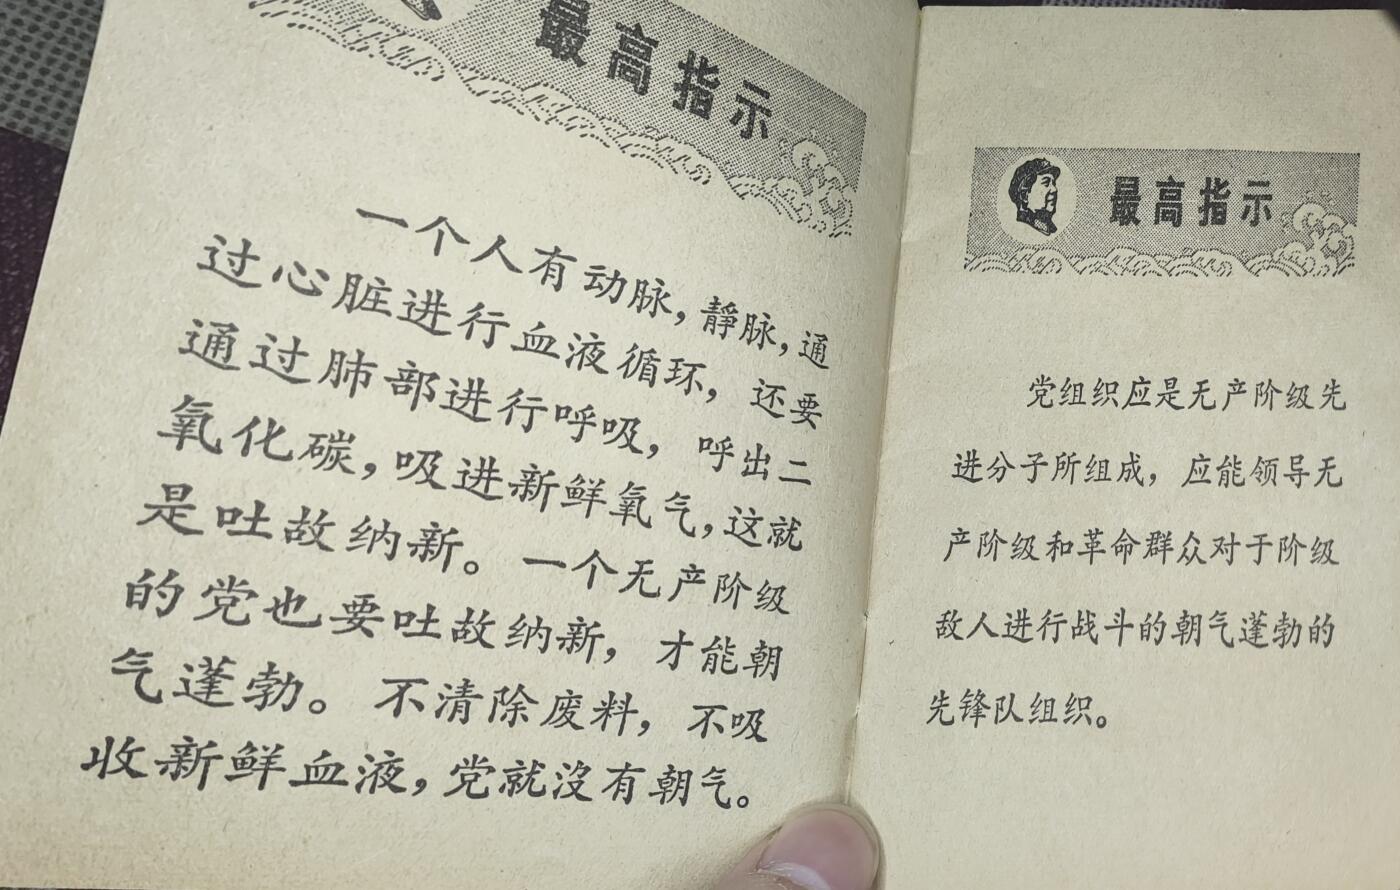 最高指示
一个人有动脉，静脉，通
过心脏进行血液循环，还要
通过肺部进行呼吸，呼出二
氧化碳，吸进新鲜氧气，这就
是吐故纳新。一个无产阶级
的党也要吐故纳新，才能朝
气蓬勃。不清除废料，不吸
收新鲜血液，党就沒有朝气。
最高指示
党组织应是无产阶级先
进分子所组成，应能领导无
产阶级和革命群众对于阶级
敌人进行战斗的朝气蓬勃的
先锋队组织。